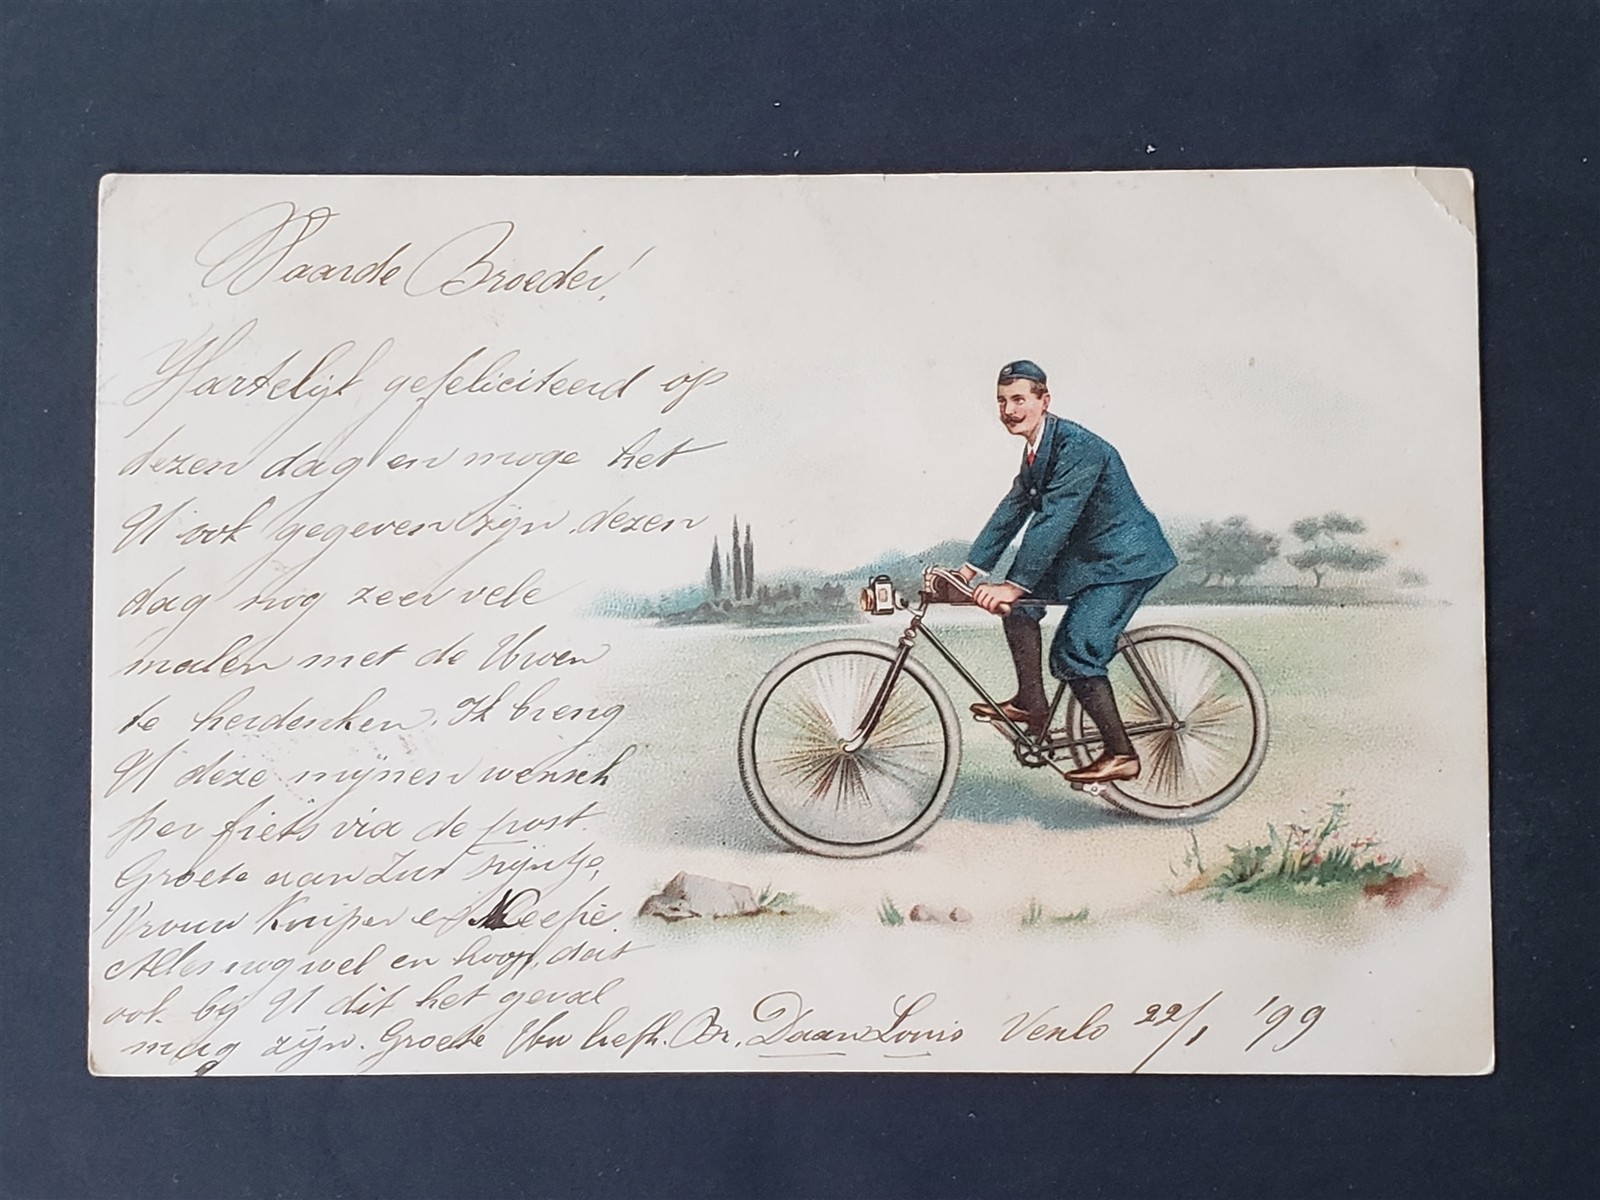 Waarde Broeder!
Hartelijk gefeliciteerd op
dezen dag en moge het
U ook gegeven zijn dezen
dag nog zeer vele
malen met de Uwen
te herdenken. Ik breng
U deze mijnen wensch
per fiets via de post.
Groete van Zus
Vrouw Kuiper
Alles nog wel en hoop, dat
ook bij U dit het geval
mag zijn. Groete Uw liefh. Br. Daan Louis Venlo 22/1 '99